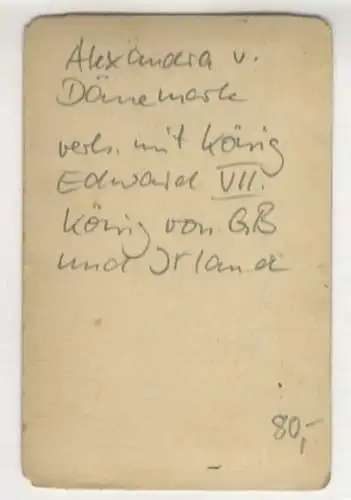 Alexandra v.
Dänemark
verh. mit König
Edward VII.
König von GB
und Irland
80,-